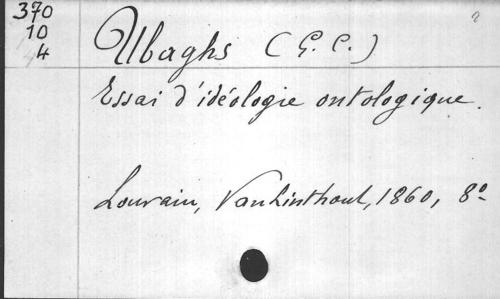 370
10
4
Ubaghs (G. C.)
Essai d'idéologie ontologique.
Louvain, Vanlinthout, 1860, 8º